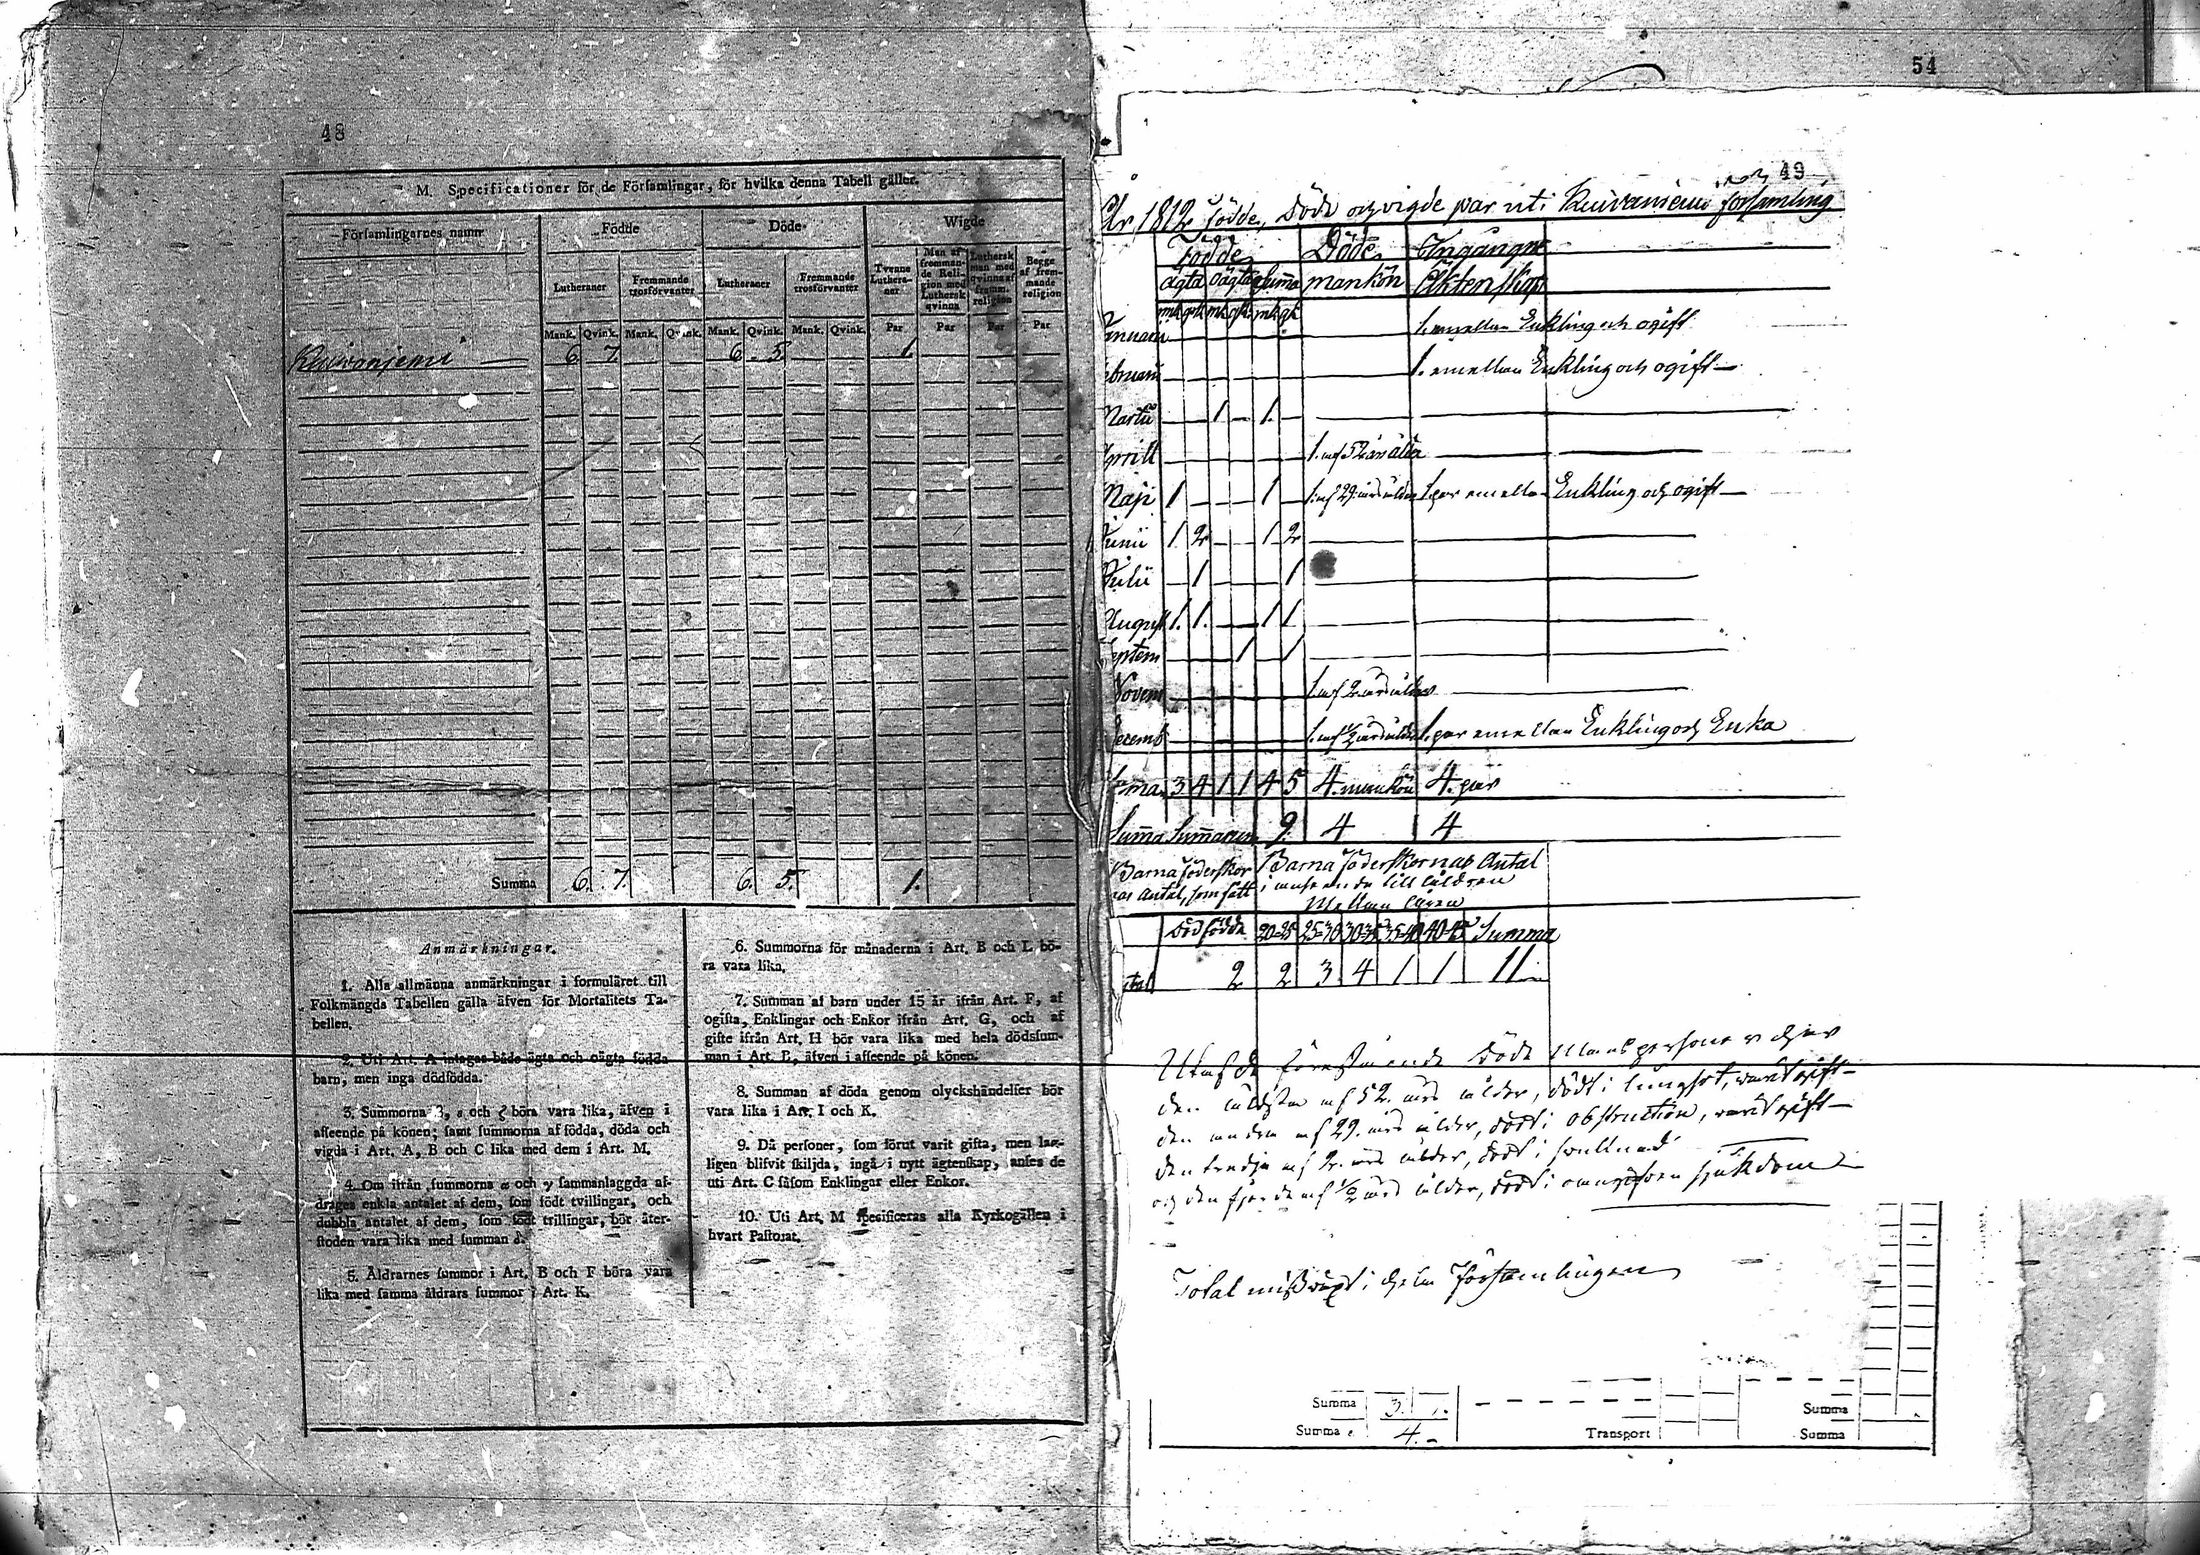 48
M. Specificationer för de Församlingar, för hvilka denna Tabell gäller.
Församlingarnes namn Födde Döde Wigde
Lutheraner Fremmande trosförvanter Lutheraner Fremmande trosförvanter Tvenne Lutheraner Man af fremmande Religion med Luthersk qvinna Luthersk man med qvinna af fremm. religion Begge af fremmande religion
Mank. Qvink. Mank. Qvink. Mank. Qvink. Mank. Qvink. Par Par Par Par
Kuivaniemi 6. 7. 6. 5. 1.
Summa 6. 7. 6. 5. 1.
Anmärkningar.
1. Alla allmänna anmärkningar i formuläret till
Folkmängds Tabellen gälla äfven för Mortalitets Ta-
bellen.
2. Uti Art. A intagas både ägta och oägta födda
barn, men inga dödfödda.
3. Summorna
böra vara lika, äfven i
afseende på könen; samt summorna af födda, döda och
vigda i Art. A, B och C lika med dem i Art. M.
4. Om ifrån summorna α och γ sammanlaggda af-
drages enkla antalet af dem, som födt tvillingar, och
dubbla antalet af dem, som födt trillingar, bör åter-
stoden vara lika med summan δ.
5. Åldrarnes summor i Art. B och F böra vara
lika med samma åldrars summor i Art. K.
6. Summorna för månaderna i Art. B och L bö-
ra vara lika.
7. Summan af barn under 15 år ifrån Art. F, af
ogifta, Enklingar och Enkor ifrån Art. G, och af
gifte ifrån Art. H bör vara lika med hela dödssum-
man i Art. B, äfven i afseende på könen.
8. Summan af döda genom olyckshändelser bör
vara lika i Art. I och K.
9. Då personer, som förut varit gifta, men lag-
ligen blifvit skiljda, ingå i nytt ägtenskap, anses de
uti Art. C såsom Enklingar eller Enkor.
10. Uti Art. M specificeras alla Kyrkogällen i
hvart Pastorat.
54
49
År 1812 Födde, Döde och vigde par uti Kuivaniemi församling
Födde Döde Ingångne
ägta oägta Summa mankön Äktenskap
mk qk mk qk mk qk
Januarii 1. emellan Enkling och ogift
Februarii 1. emellan Enkling och ogift
Martii 1 1.
Aprill 1. af 52 års ålder
Maji 1 1 1. af 29. års ålder 1 par emellan Enkling och ogift
Junii 1. 2 1 2
Julii 1 1
August 1. 1. 1 1
Septem 1 1
Novem 1. af 2. års ålder
Decemb 1. af 1/2 års ålder 1. par emellan Enkling och Enka
Summa 3 4 1 1 4 5 4. mankön 4. par
Summa Summarum 9. 4 4
Barnaföderskor Barnaföderskornas Antal
nas Antal, som fått i anseende till åldren
Mellan åren
Död födda 20-25 25-30 30-35 35-40 40-45 Summa
tal 2 2 3 4 1 1 11
Utaf de föreståendе döde Manspersoner
den äldsta af 52. års ålder, död i lungsot, warit gift
den andra af 29. års ålder, död i obstruction, warit gift
den tredje af 2. års ålder, död i svullnad
och den fjerde af 1/2 års ålder, död i omgifven sjukdom
Total missväxt i hela Församlingen
Summa 3. 1. Summa
Summa ε 4. Transport Summa